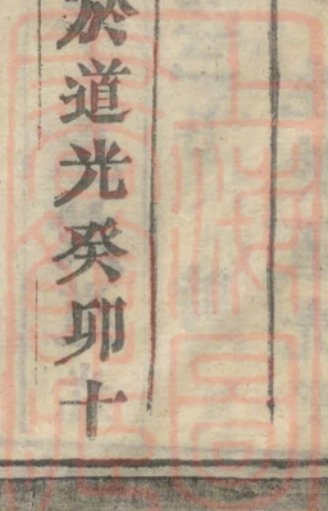 於道光癸卯十